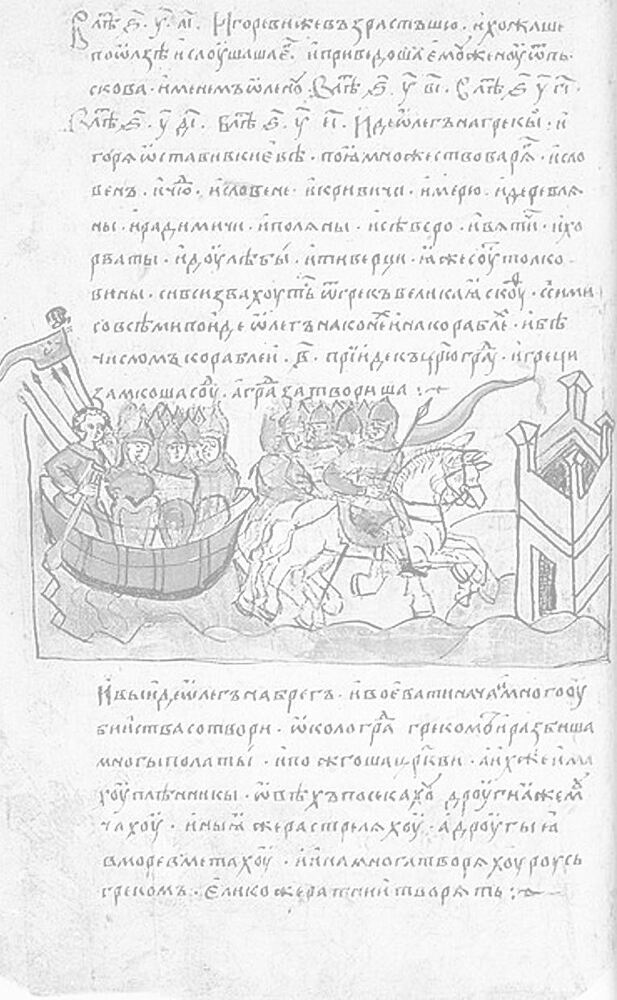 В лѣт҃ ҂ѕ҃. у҃. аı҃. Игореви же възрастъшю. и хожаше
по ѡлзѣ и слоушаше г҃. и приведоша ему женоу ѿ пь
скова. именемъ ѡленоу. В лѣт҃ ҂ѕ҃. у҃ вı҃. В лѣт҃ ҂ѕ҃ у҃ гı҃.
В лѣт҃ ҂ѕ҃. у҃ дı҃. В лѣт҃ ҂ѕ҃. у҃ еı҃. Иде ѡлегъ на грекы. и
горя ѡставив киевѣ. поꙗ множество варѧ. и сло
венъ. и чю. и словене. и кривичи. и мерю. и деревлѧ
ны. и радимичи. и полѧны. и сѣверо. и вѧти. и хо
рваты. и доулѣбы. и тиверци. ꙗже соуть толко
вины. си вси звахоуть ѿ грекъ великаꙗ скоуѳ. с сими
со всѣми поиде ѡлегъ на конех и на корабле. и бѣ
числомъ кораблеи. в҃. приде къ црюграду. и греци
замкоша соуд. а град затвориша :~
И выиде ѡлегъ на брегъ. и воевати нача и много оу
бииства сотвори. ѡколо града грекомъ и разбиша
многы полаты. и пожгоша церкви. а их же има
хоу плѣнникы. ѡвѣхъ посекахоу дроугиꙗ же моу
чахоу. иныꙗ же растрелѧхоу. а дроугыꙗ
в море вметахоу. и ина многа творѧхоу роусь
грекомъ. елико же ратнии творѧть :~